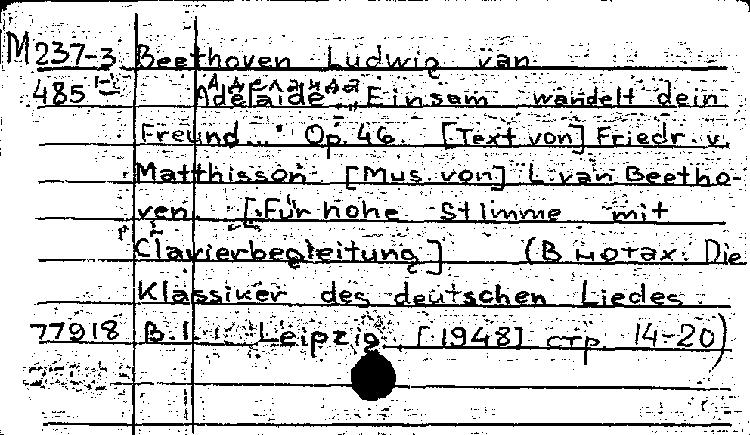 M 237-3 Beethoven Ludwig van
485 Аделаида
Adelaide „Einsam wandelt dein
Freund..." Op. 46. [Text von] Friedr. v.
Matthisson. [Mus. von] L. van Beetho-
ven. [Für hohe Stimme mit
Clavierbegleitung] (В нотах: Die
Klassiker des deutschen Liedes.
77918 B. I. Leipzig. [1948] стр. 14-20)